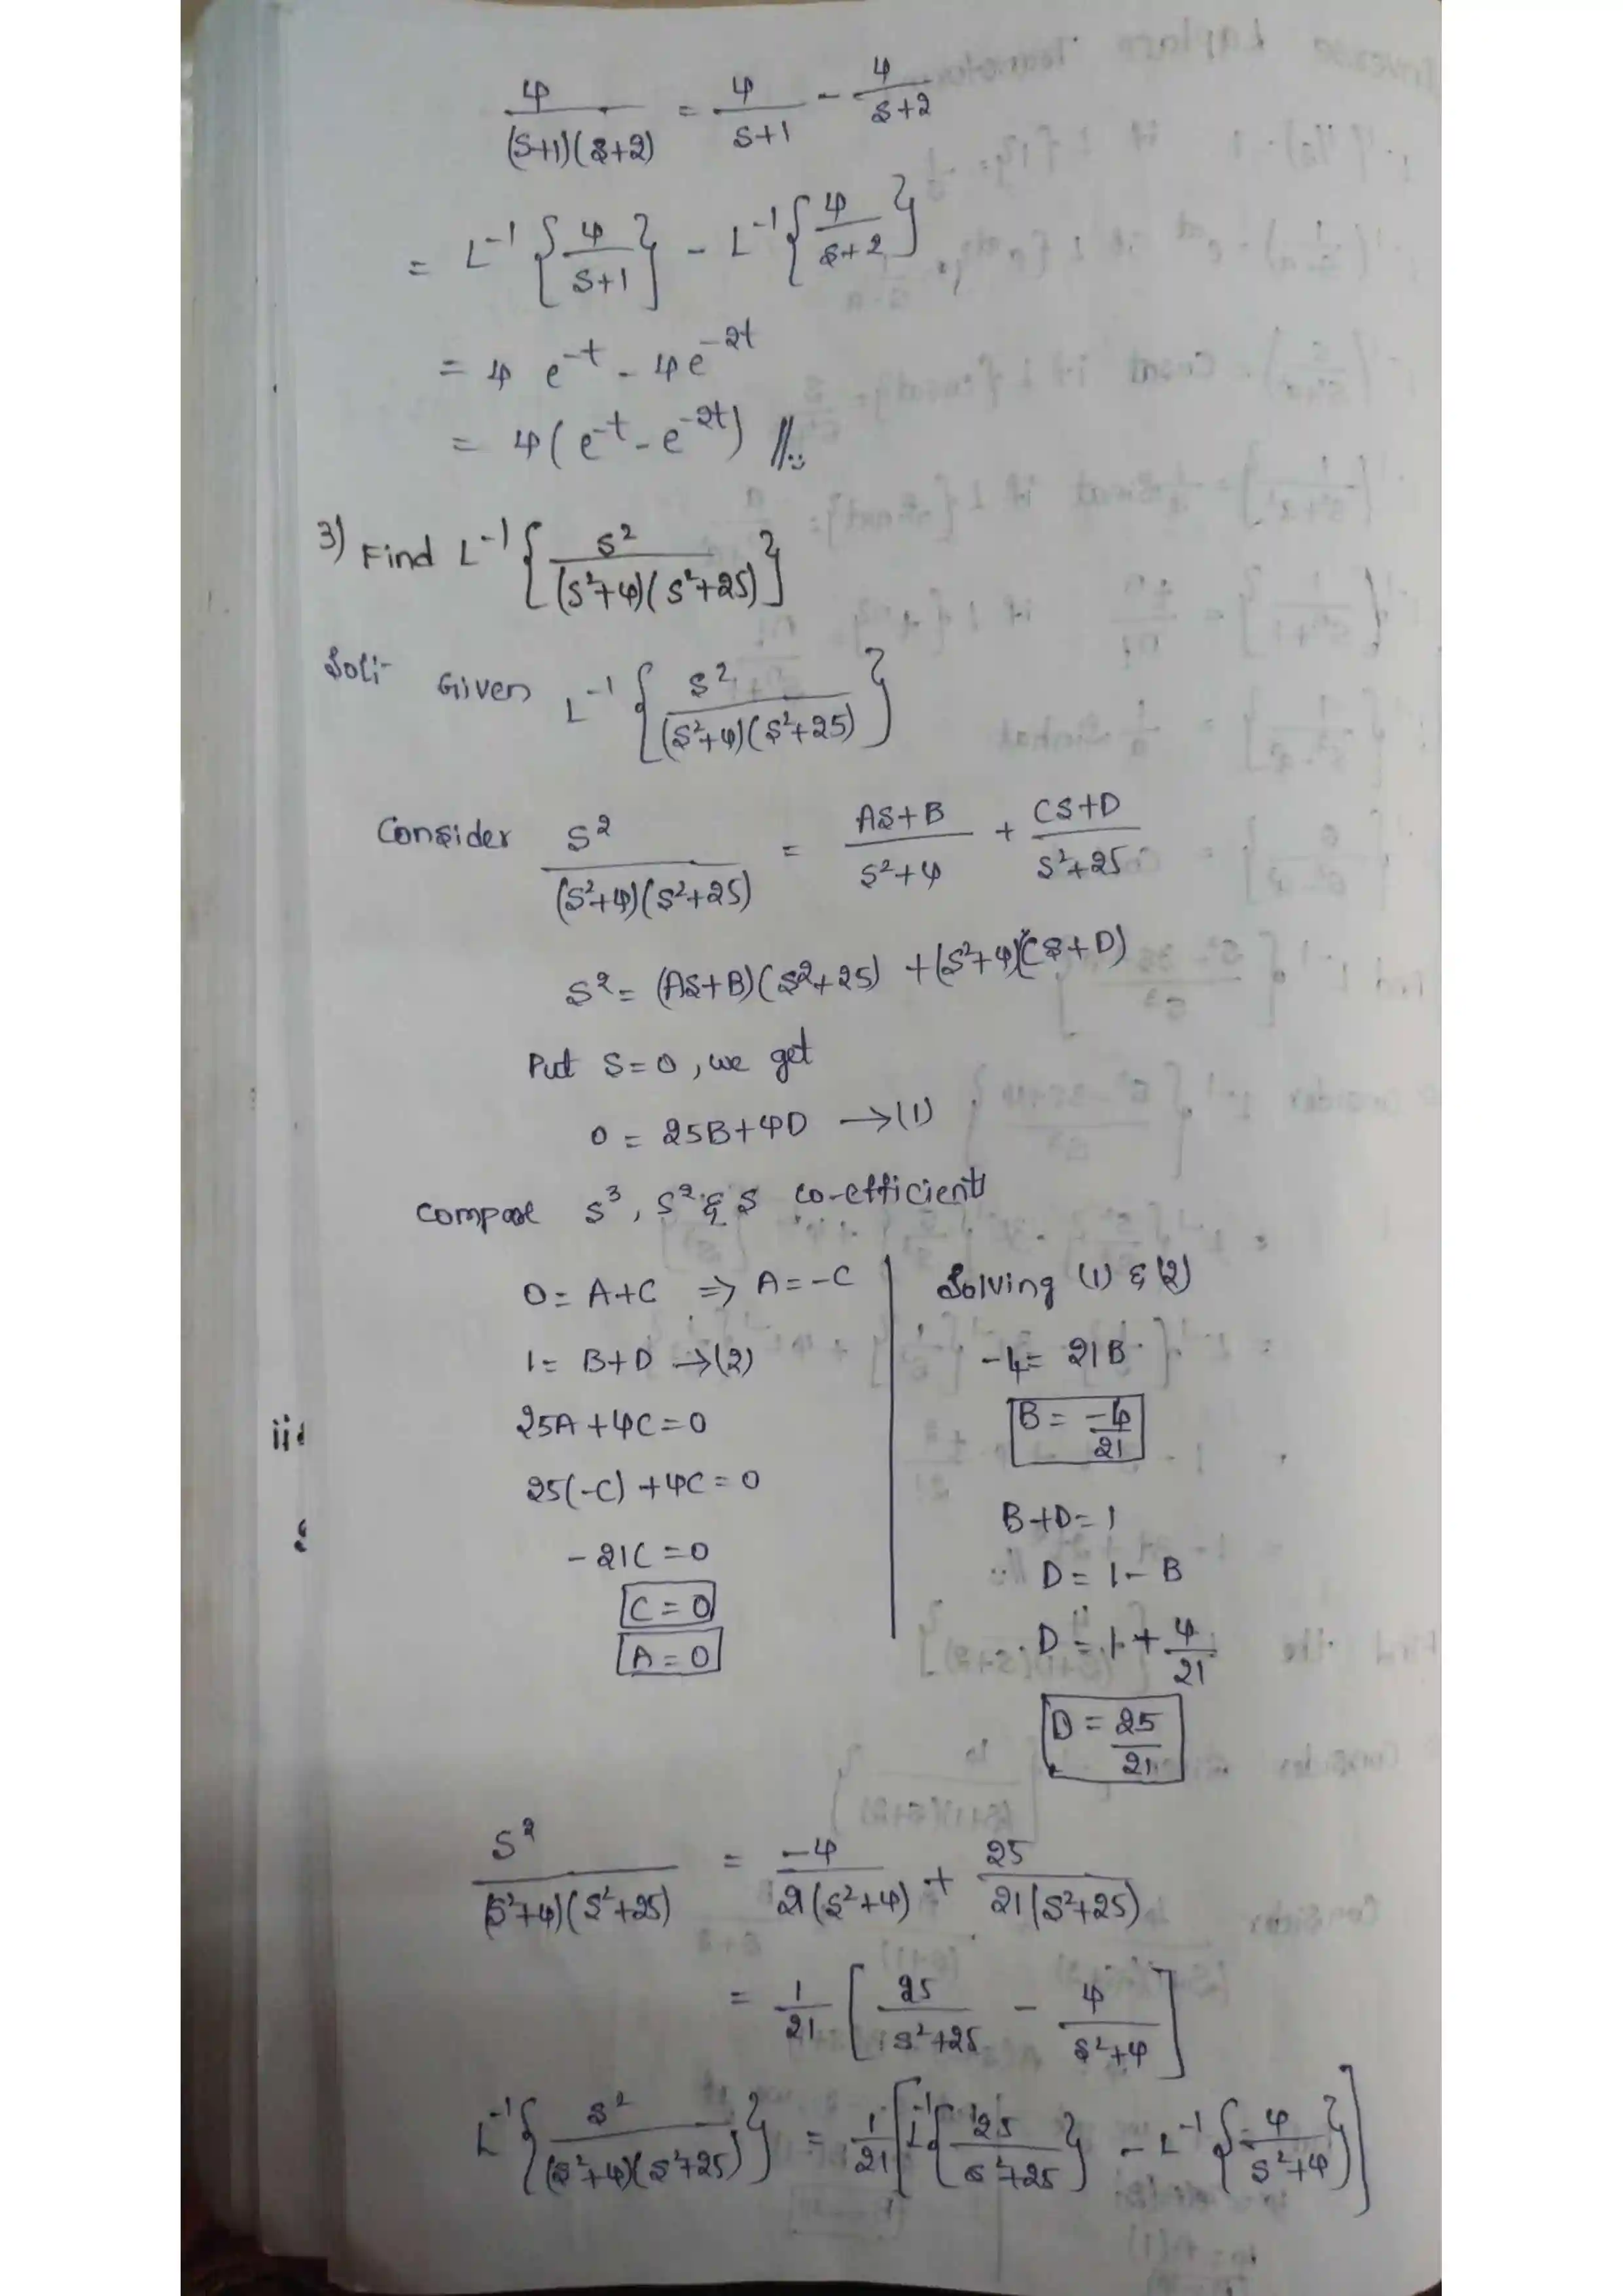 4/((s+1)(s+2)) = 4/(s+1) - 4/(s+2)
= L⁻¹{4/(s+1)} - L⁻¹{4/(s+2)}
= 4 e^-t - 4e^-2t
= 4(e^-t - e^-2t) //
3) Find L⁻¹{s²/((s²+4)(s²+25))}
Sol:- Given L⁻¹{s²/((s²+4)(s²+25))}
Consider s²/((s²+4)(s²+25)) = (As+B)/(s²+4) + (Cs+D)/(s²+25)
s² = (As+B)(s²+25) + (s²+4)(Cs+D)
Put s=0, we get
0 = 25B+4D →(1)
compare s³, s² & s co-efficients
0 = A+C ⇒ A=-C
1 = B+D →(2)
25A+4C=0
25(-C)+4C=0
-21C=0
C=0
A=0
Solving (1) & (2)
-4 = 21B
B = -4/21
B+D=1
D = 1-B
D = 1+4/21
D = 25/21
s²/((s²+4)(s²+25)) = -4/(21(s²+4)) + 25/(21(s²+25))
= 1/21 [25/(s²+25) - 4/(s²+4)]
L⁻¹{s²/((s²+4)(s²+25))} = 1/21 [L⁻¹{25/(s²+25)} - L⁻¹{4/(s²+4)}]